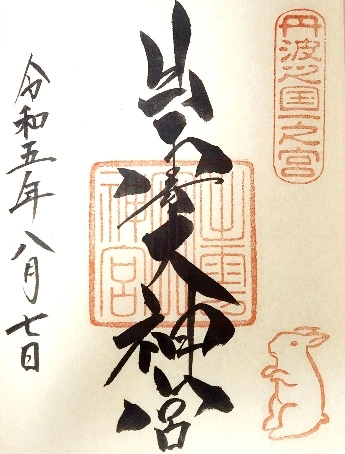 丹波之国一之宮
出雲大神宮
出雲神宮
令和五年八月七日